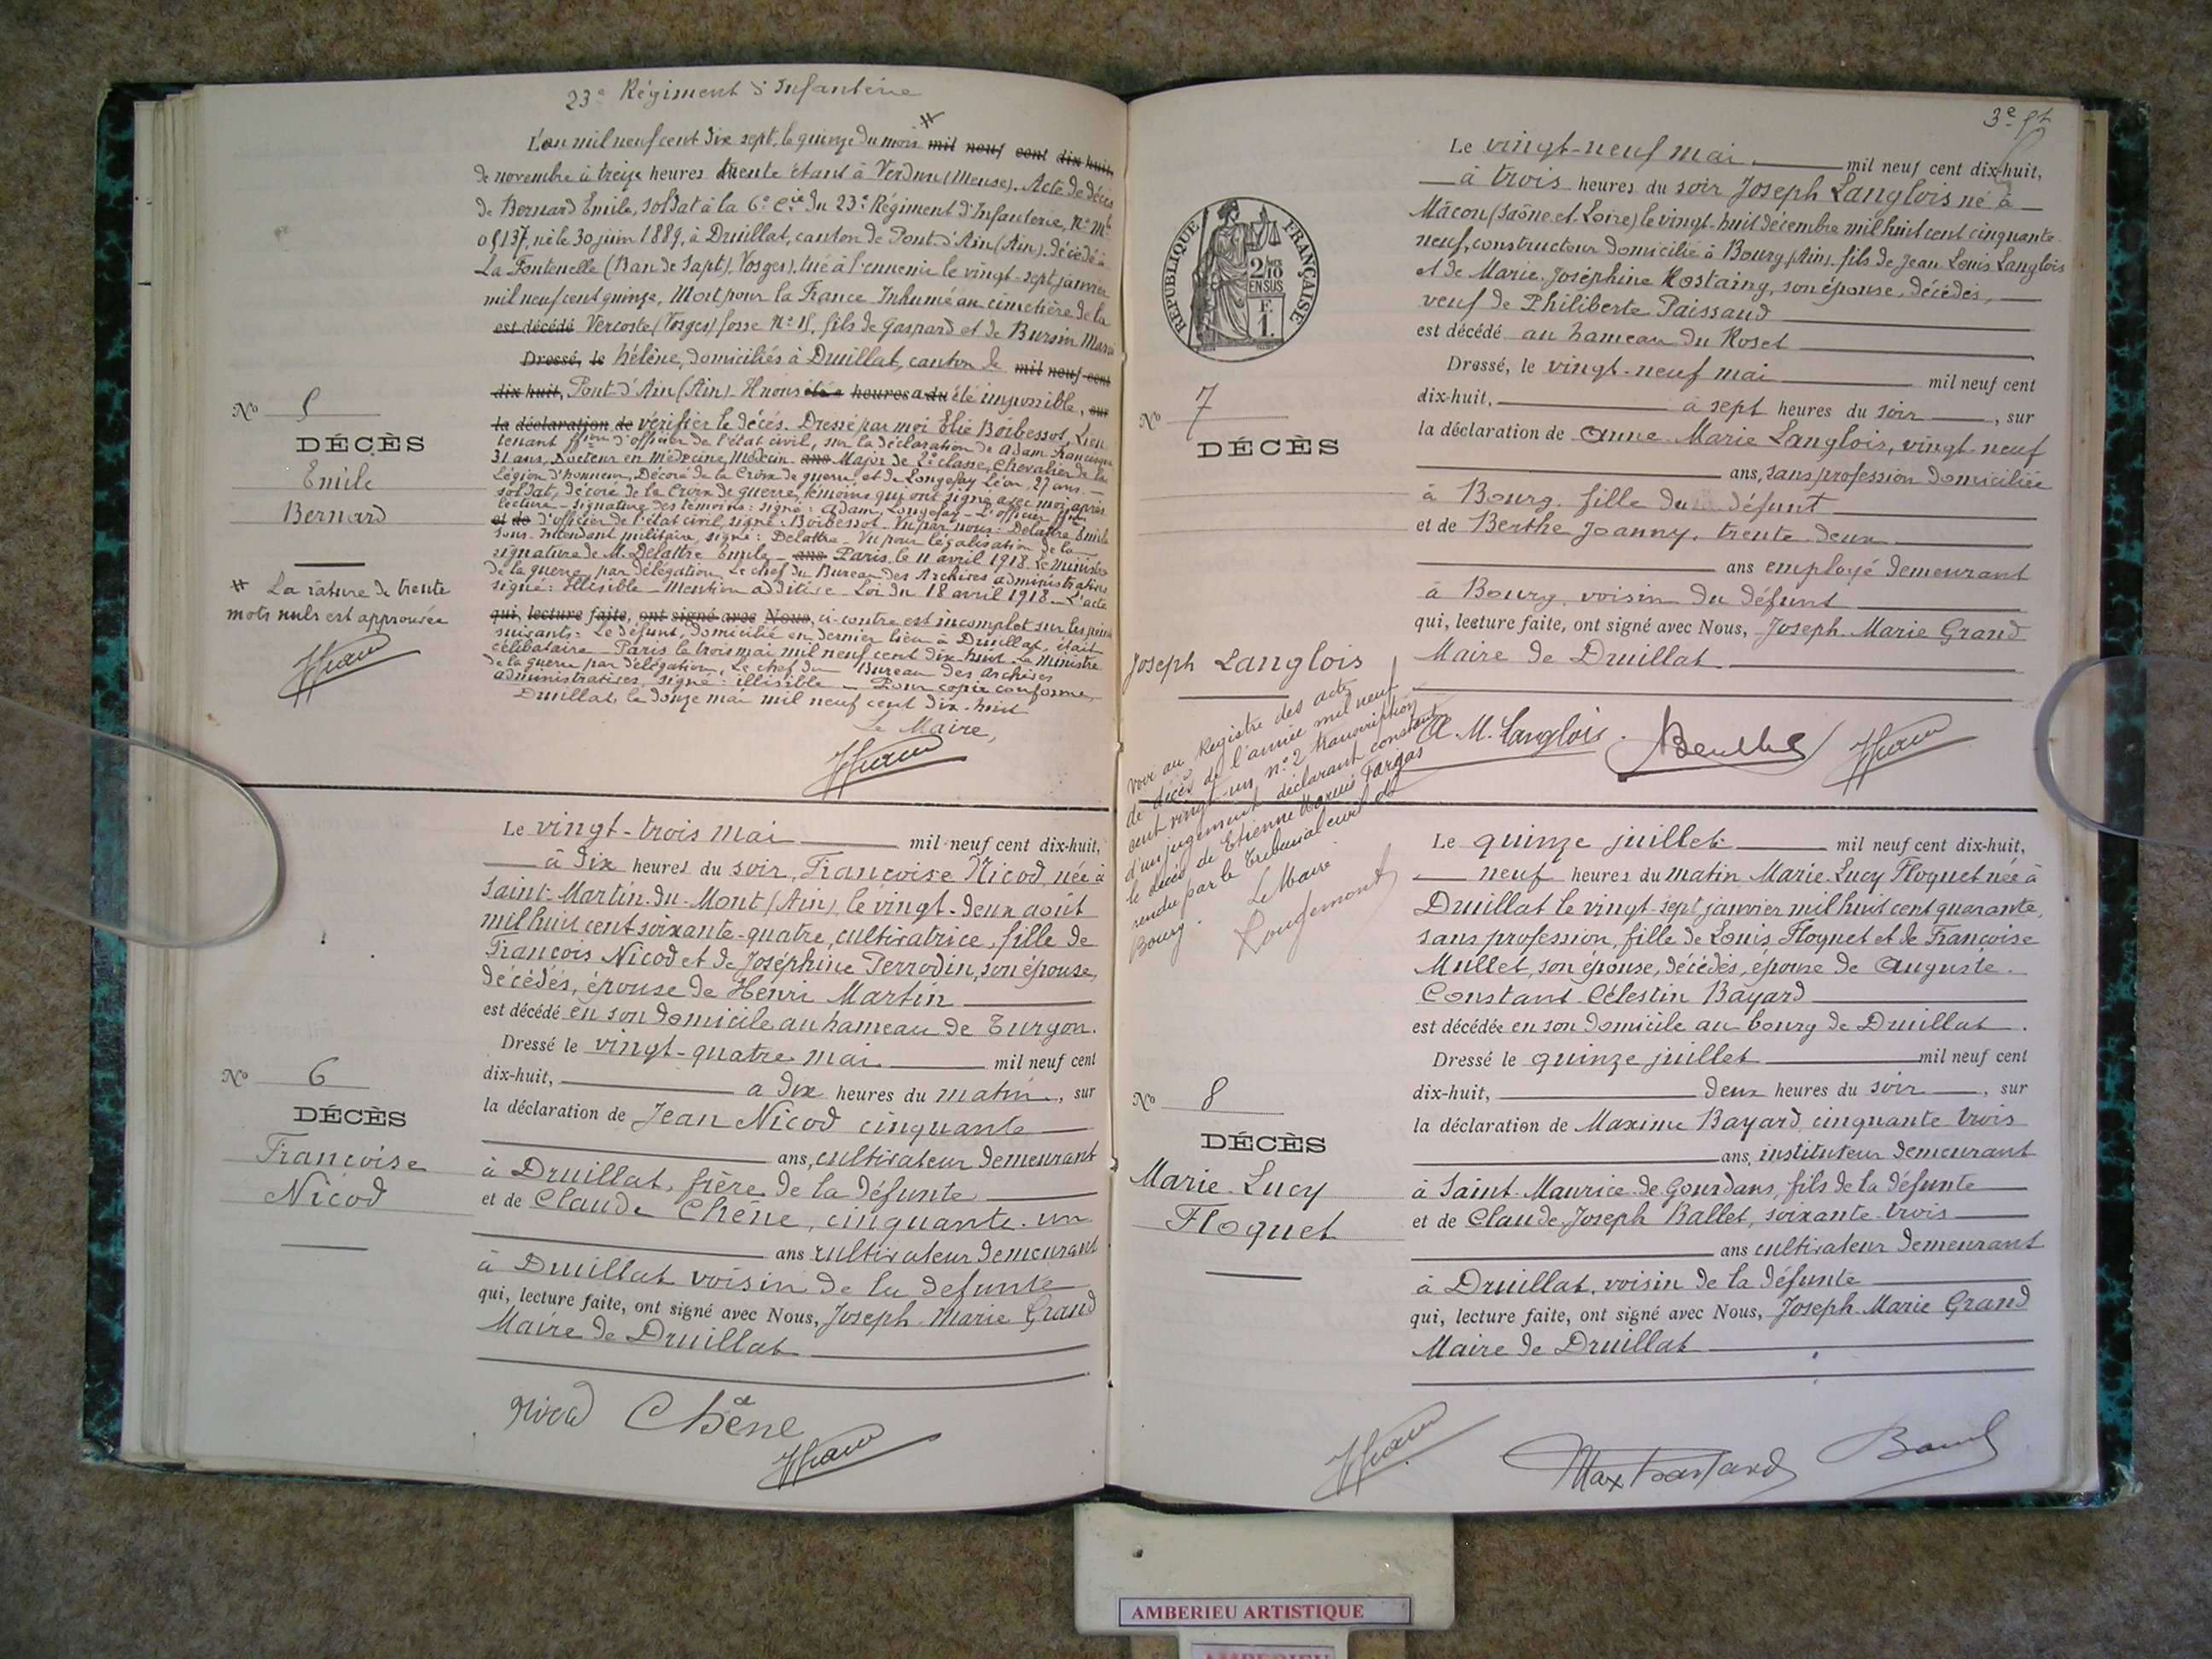 23e Régiment d'Infanterie
#
L'an mil neuf cent dix sept, le quinze du mois mil neuf cent dix-huit,
de novembre à treize heures trente étant à Verdun (Meuse). Acte de décès
de Bernard Emile, soldat à la 6e Cie du 23e Régiment d'Infanterie, No Mle
05137, né le 30 juin 1889, à Druillat, canton de Pont-d'Ain (Ain), décédé à
La Fontenelle (Ban de Sapt), Vosges), tué à l'ennemi le vingt-sept janvier
mil neuf cent quinze, Mort pour la France Inhumé au cimetière de la
est décédé Vercoste (Vosges) fosse No 15, fils de Gaspard et de Bursin Marie
Dressé, le hélène, domiciliés à Druillat, canton de mil neuf cent
dix-huit, Pont-d'Ain (Ain) - Il nous heures a du été impossible, sur
la déclaration de vérifier le décès. Dressé par moi Elie Boibessot, Lieu
tenant ffion d'officier de l'état civil, sur la déclaration de Adam Francisque
31 ans, Docteur en Médecine, Médecin ans Major de 2e classe, Chevalier de la
Légion d'honneur, Décoré de la Croix de guerre, et de Longefay Léon, 27 ans -
soldat, décoré de la Croix de guerre, témoins qui ont signé avec moi après
lecture - signature des témoins : signé : Adam, Longefay - L'officier ffon
et de d'officier de l'état civil, signé : Boibessot - Vu par nous : Delattre Emile
Sous-Intendant militaire, signé : Delattre - Vu pour légalisation de la
signature de M. Delattre Emile - ans Paris, le 11 avril 1918. Le Ministre
de la guerre, par délégation, Le chef du Bureau des Archives administratives
signé : Illisible - Mention additive - Loi du 18 avril 1918 - L'acte
qui, lecture faite, ont signé avec Nous, ci-contre est incomplet sur les points
suivants : Le défunt, domicilié en dernier lieu à Druillat, était
célibataire - Paris le trois mai mil neuf cent dix-huit - Le Ministre
de la guerre par délégation, Le chef du Bureau des Archives
administratives, signé : illisible - Pour copie conforme,
Druillat le douze mai mil neuf cent dix-huit
Le Maire,
JGrand
No 5
DÉCÈS
Emile
Bernard
# La rature de trente
mots nuls est approuvée
JGrand
Le vingt-trois mai mil neuf cent dix-huit,
à dix heures du soir, Françoise Nicod, née à
Saint-Martin-du-Mont (Ain), le vingt-deux août
mil huit cent soixante-quatre, cultivatrice, fille de
François Nicod et de Joséphine Perrodin, son épouse,
décédés, épouse de Henri Martin
est décédé en son domicile au hameau de Turgon.
Dressé le vingt-quatre mai mil neuf cent
dix-huit, a dix heures du matin, sur
la déclaration de Jean Nicod cinquante
ans, cultivateur demeurant
à Druillat, frère de la défunte
et de Claude Chêne, cinquante-un
ans cultivateur demeurant
à Druillat voisin de la défunte
qui, lecture faite, ont signé avec Nous, Joseph-Marie Grand
Maire de Druillat
No 6
DÉCÈS
Françoise
Nicod
Nicod Chêne
JGrand
3e ft
Le vingt-neuf mai mil neuf cent dix-huit,
à trois heures du soir Joseph Langlois né à
Mâcon (Saône-et-Loire) le vingt-huit décembre mil huit cent cinquante-
neuf, constructeur domicilié à Bourg (Ain), fils de Jean Louis Langlois
et de Marie-Joséphine Rostaing, son épouse, décédés,
veuf de Philiberte Paissaud
est décédé au hameau du Roset
Dressé, le vingt-neuf mai mil neuf cent
dix-huit, à sept heures du soir, sur
la déclaration de Anne-Marie Langlois, vingt-neuf
ans, sans profession domiciliée
à Bourg, fille du défunt
et de Berthe Joanny, trente-deux
ans employé demeurant
à Bourg, voisin du défunt
qui, lecture faite, ont signé avec Nous, Joseph-Marie Grand
Maire de Druillat
RÉPUBLIQUE FRANÇAISE
2/10
EN SUS
F.
1.
No 7
DÉCÈS
Joseph Langlois
A. M. Langlois. JGrand
Voir au Registre des actes
de décès de l'année mil neuf
cent vingt-un, no 2 transcription
d'un jugement déclarant constant
le décès de Etienne Marius Fargas
rendu par le Tribunal civil de
Bourg.
Le Maire
Rougemont
Le quinze juillet mil neuf cent dix-huit,
neuf heures du matin Marie-Lucy Floquet née à
Druillat le vingt-sept janvier mil huit cent quarante,
sans profession, fille de Louis Floquet et de Françoise
Mullet, son épouse, décédés, épouse de Auguste-
Constant-Célestin Bayard
est décédée en son domicile au bourg de Druillat.
Dressé le quinze juillet mil neuf cent
dix-huit, deux heures du soir, sur
la déclaration de Maxime Bayard cinquante trois
ans, instituteur demeurant
à Saint-Maurice-de-Gourdans, fils de la défunte
et de Claude-Joseph Ballet, soixante-trois
ans cultivateur demeurant
à Druillat, voisin de la défunte
qui, lecture faite, ont signé avec Nous, Joseph-Marie Grand
Maire de Druillat
No 8
DÉCÈS
Marie-Lucy
Floquet
JGrand
AMBERIEU ARTISTIQUE
AMBERIEU